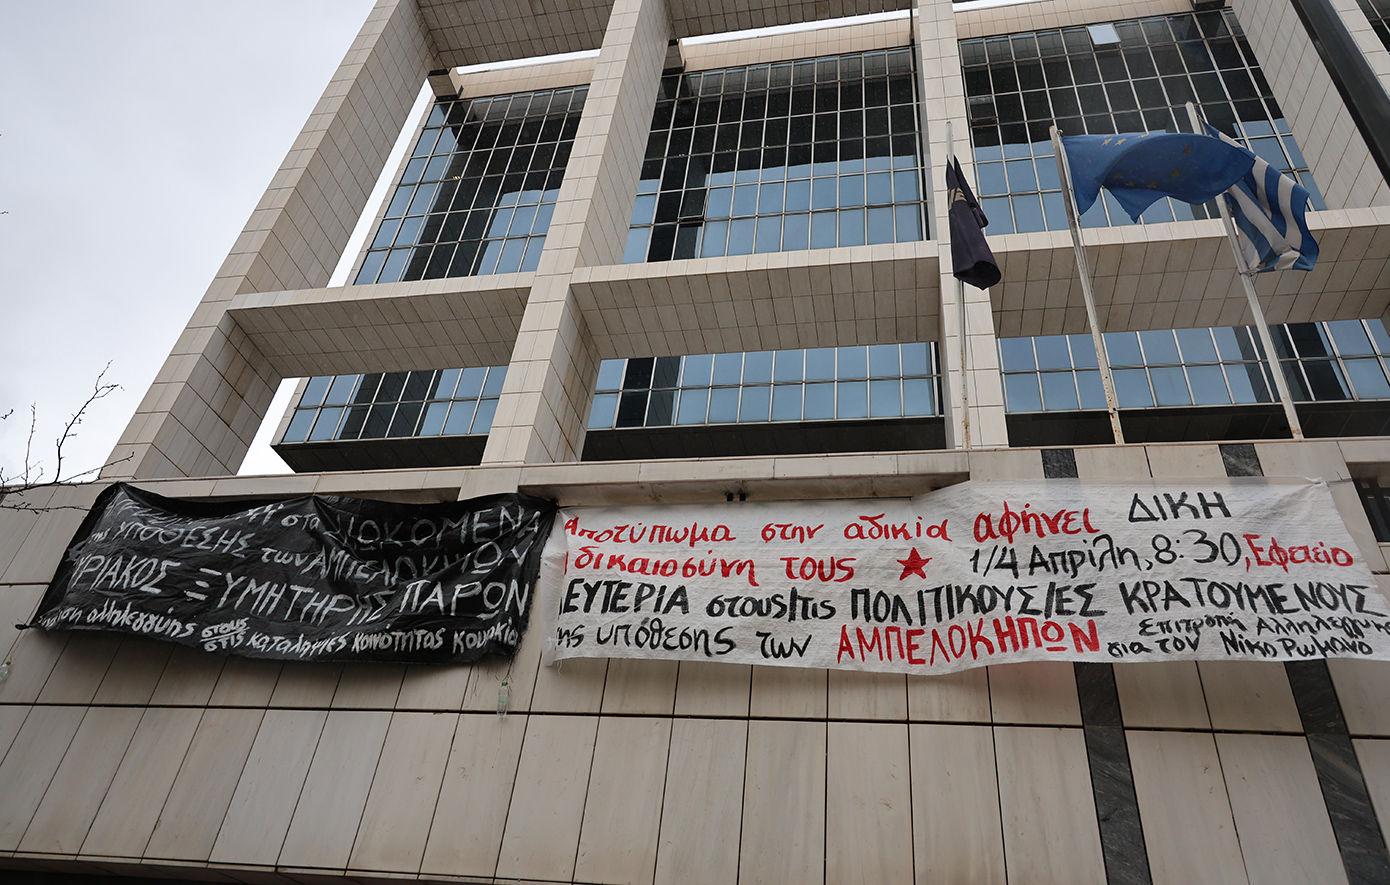 στα ΔΙΩΚΟΜΕΝΑ
της ΥΠΟΘΕΣΗΣ των ΑΜΠΕΛΟΚΗΠΩΝ
ΚΥΡΙΑΚΟΣ ΞΥΜΗΤΗΡΗΣ ΠΑΡΩΝ
αλληλεγγύης στους/στις καταληψίες Κοινότητας Κουκακίου
Αποτύπωμα στην αδικία αφήνει
η δικαιοσύνη τους ★
ΔΙΚΗ
1/4 Απρίλη, 8:30, Εφετείο
ΛΕΥΤΕΡΙΑ στους/τις ΠΟΛΙΤΙΚΟΥΣ/ΕΣ ΚΡΑΤΟΥΜΕΝΟΥΣ
της υπόθεσης των ΑΜΠΕΛΟΚΗΠΩΝ
Επιτροπή Αλληλεγγύης
για τον Νίκο Ρωμανό